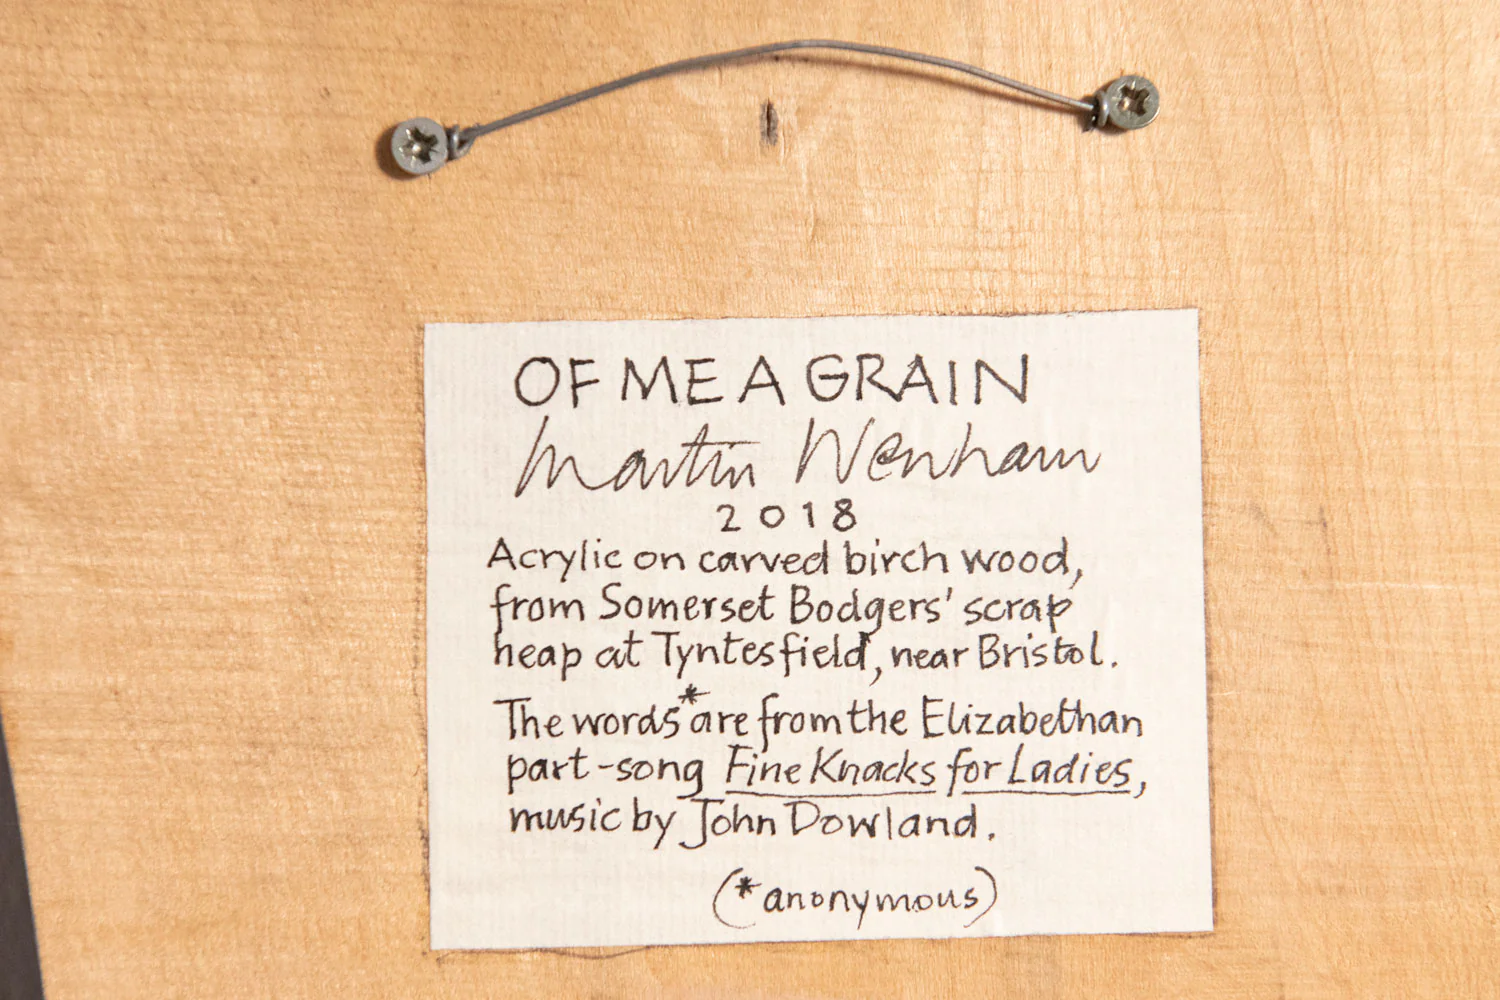 OF ME A GRAIN
Martin Wenham
2018
Acrylic on carved birch wood,
from Somerset Bodgers' scrap
heap at Tyntesfield, near Bristol.
The words* are from the Elizabethan
part-song Fine Knacks for Ladies,
music by John Dowland.
(*anonymous)